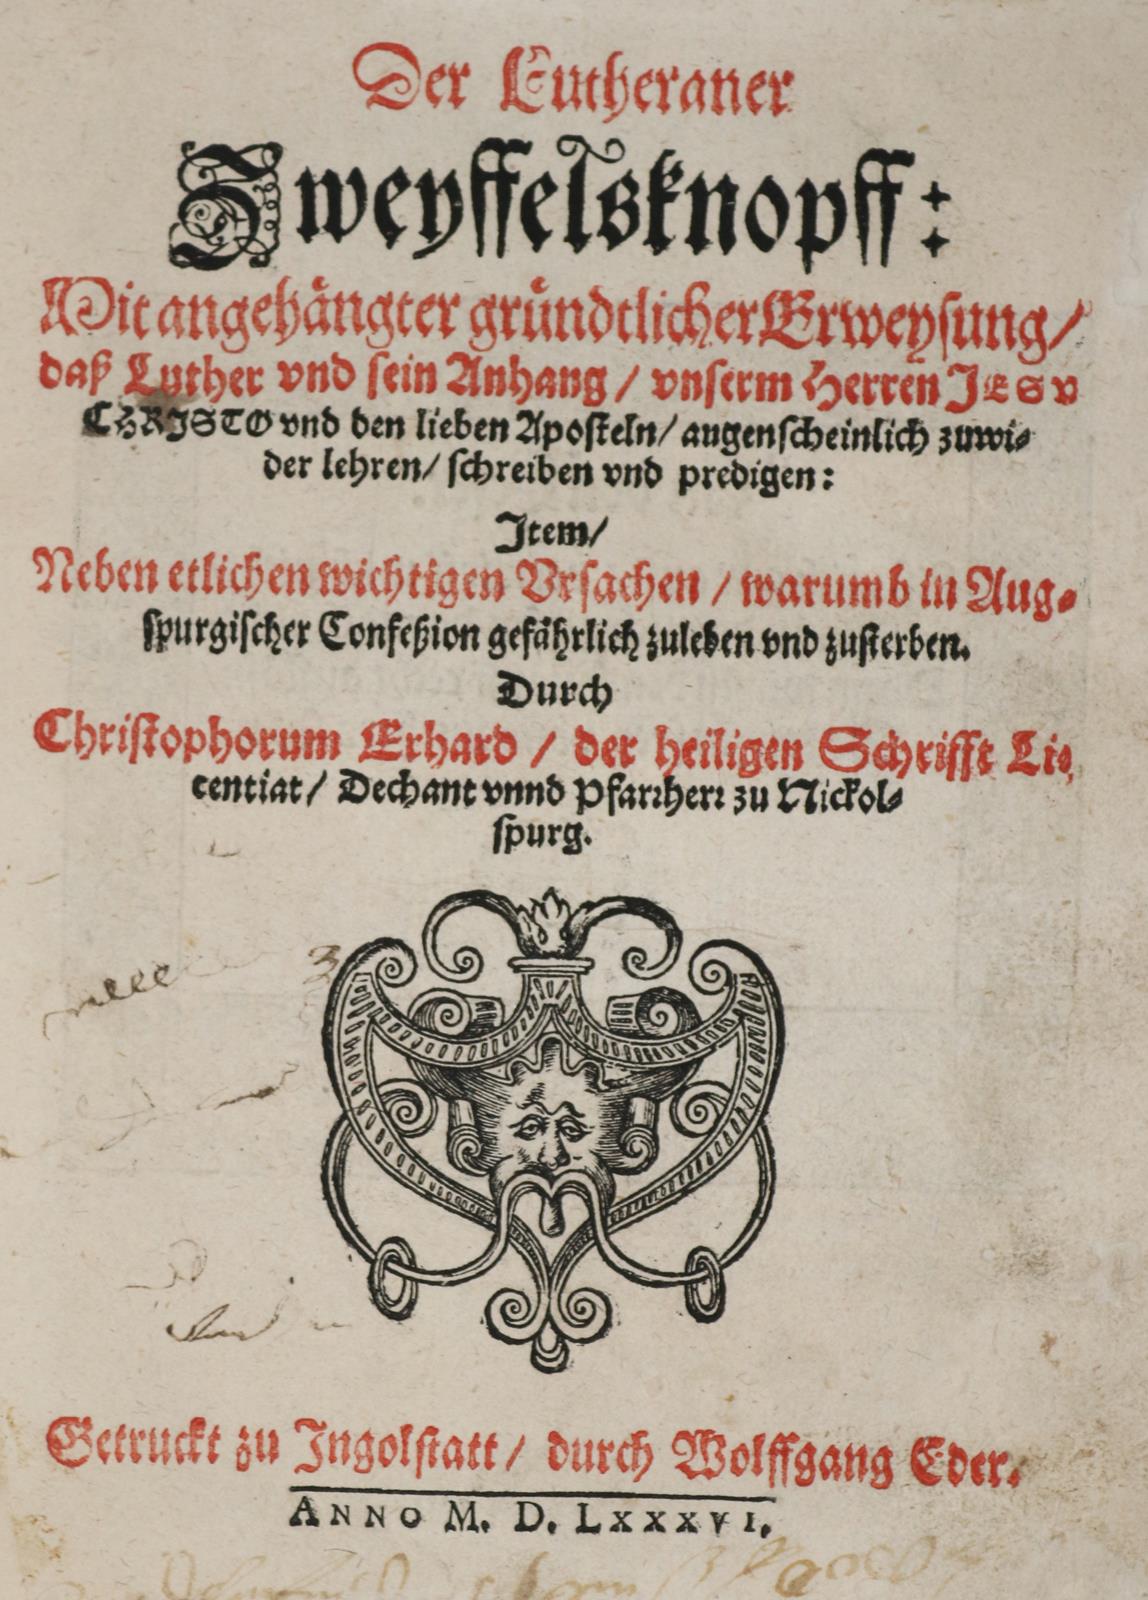 Der Lutheraner
Zweyffelsknopff:
Mit angehängter gründtlicher Erweysung/
daß Luther vnd sein Anhang / vnserm Herren JESV
CHRISTO vnd den lieben Aposteln/ augenscheinlich zuwi-
der lehren/ schreiben vnd predigen:
Item/
Neben etlichen wichtigen Vrsachen / warumb in Aug-
spurgischer Confeßion gefährlich zuleben vnd zusterben.
Durch
Christophorum Erhard / der heiligen Schrifft Li-
centiat/ Dechant vnnd Pfarrherr zu Nickol-
spurg.
Getruckt zu Ingolstatt/ durch Wolffgang Eder.
ANNO M. D. LXXXVI.